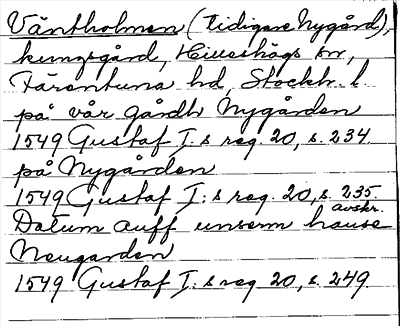 Väntholmen (tidigare Nygård),
kungsgård, Hilleshögs sn,
Färentuna hd, Stockh. l.
på vår gårdh Nygården
1549 Gustaf I:s reg. 20, s. 234.
på Nygården
1549 Gustaf I:s reg. 20, s. 235
avskr.
Datum auff unserm hause
Neugarden
1549 Gustaf I:s reg. 20, s. 249.